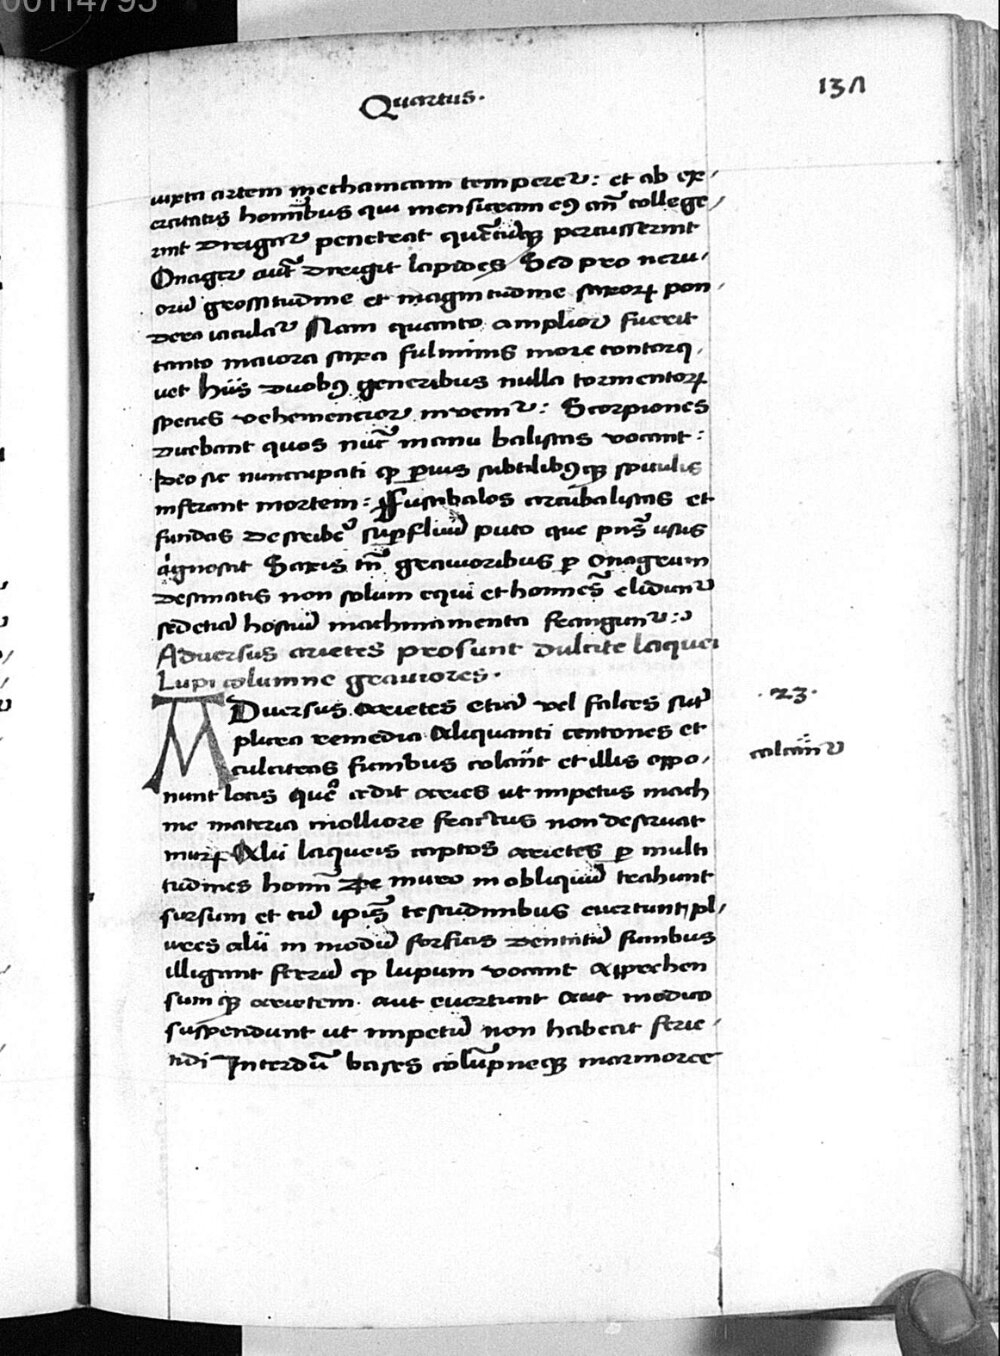 00114795
Quartus.
137
iuxta artem mechanicam temperet᷑: et ab ex,
ercitatis homībus qui mensuram eꝰ añ college,
rint dirigat᷑ penetrat quēcūqꝫ percusserint
Onager aut̃ dirigit lapides Sed pro neru,
orū grossitudine et magnitudine saxorꝝ pon,
dera iaculat᷑ Nam quanto amplior fuerit
tanto maiora saxa fulminis more contorq,
uet hiis duobꝰ generibus nulla tormentorꝝ
species vehemencior inuenit᷑: Scorpiones
dicebant quos nūc manu balistas vocant:
Ideo sic nuncupati qꝫ paruis subtilibꝰqꝫ spiculis
inferant mortem: Fustibalos arcubalistas et
fundas describeᷣ supfluū puto que pn̄s usus
agnoscit Saxis tn̄ grauioribus ꝑ Onagrum
destinatis non solum equi et homines eliduntᷣ
sed etiā hostiū machinamenta franguntᷣ:
Aduersus arietes prosunt dulcite laquei
Lupi columne grauiores.
ADuersus arietes etiā vel falces sūt
plura remedia Aliquanti centones et
culcitras funibus colant et illis oppo,
nunt locis quę cedit aries ut impetus mach
ine materia molliore fractus non destruat
murꝝ Alii laqueis captos arietes ꝑ multi
tudines homī de muro in obliquū trahunt
sursum et cū ipis̄ testudinibus euertunt pl,
ures alii in modū forficis dentatū funibus
illigant ferrū qꝫ lupum vocant apprehen
sumqꝫ arietem. aut euertunt aut modico
suspendunt ut impetū non habeat ferie,
ndi Interdū bases colūpneqꝫ marmoree
.23.